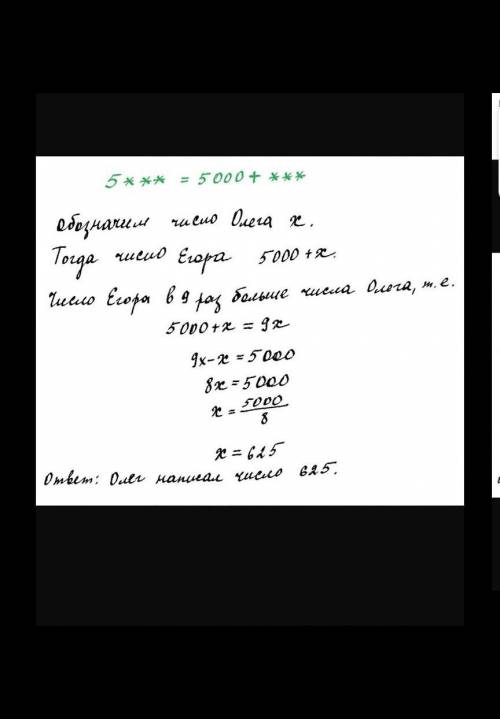 5*** = 5000 + ***
Обозначим число Олега x.
Тогда число Егора 5000+x.
Число Егора в 9 раз больше числа Олега, т.е.
5000+x = 9x
9x-x = 5000
8x = 5000
x = 5000/8
x = 625
Ответ: Олег написал число 625.